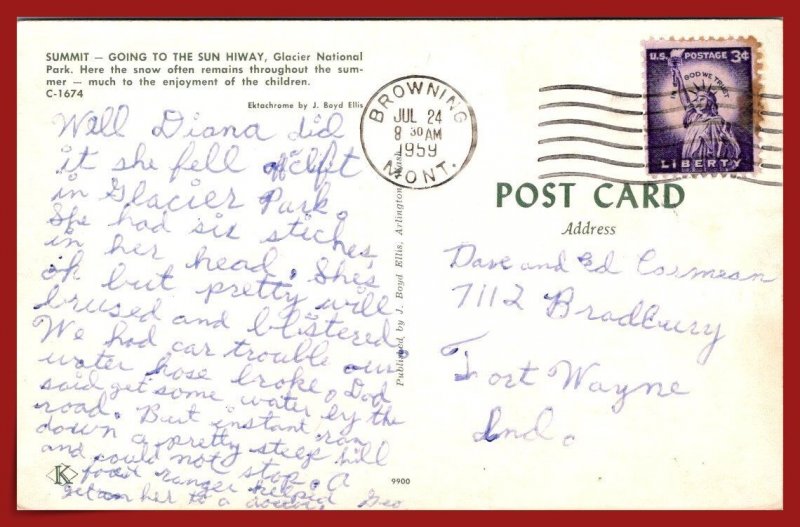 SUMMIT — GOING TO THE SUN HIWAY, Glacier National
Park. Here the snow often remains throughout the sum-
mer — much to the enjoyment of the children.
C-1674
Ektachrome by J. Boyd Ellis
Well Diana did
it she fell off clift
in Glacier Park.
She had six stiches
in her head. She's
ok but pretty will
brused and blistered
We had car trouble our
water hose broke. Dad
said get some water by the
road. But instant ran
down a pretty steep hill
and could not stop. A
ranger helped
get her to a doctor. Geo
K
9900
Published by J. Boyd Ellis, Arlington, Wash.
BROWNING
JUL 24
8 30 AM
1959
MONT.
U.S. POSTAGE 3¢
IN GOD WE TRUST
LIBERTY
POST CARD
Address
Dave and Ed
7112 Bradbury
Fort Wayne
Ind.